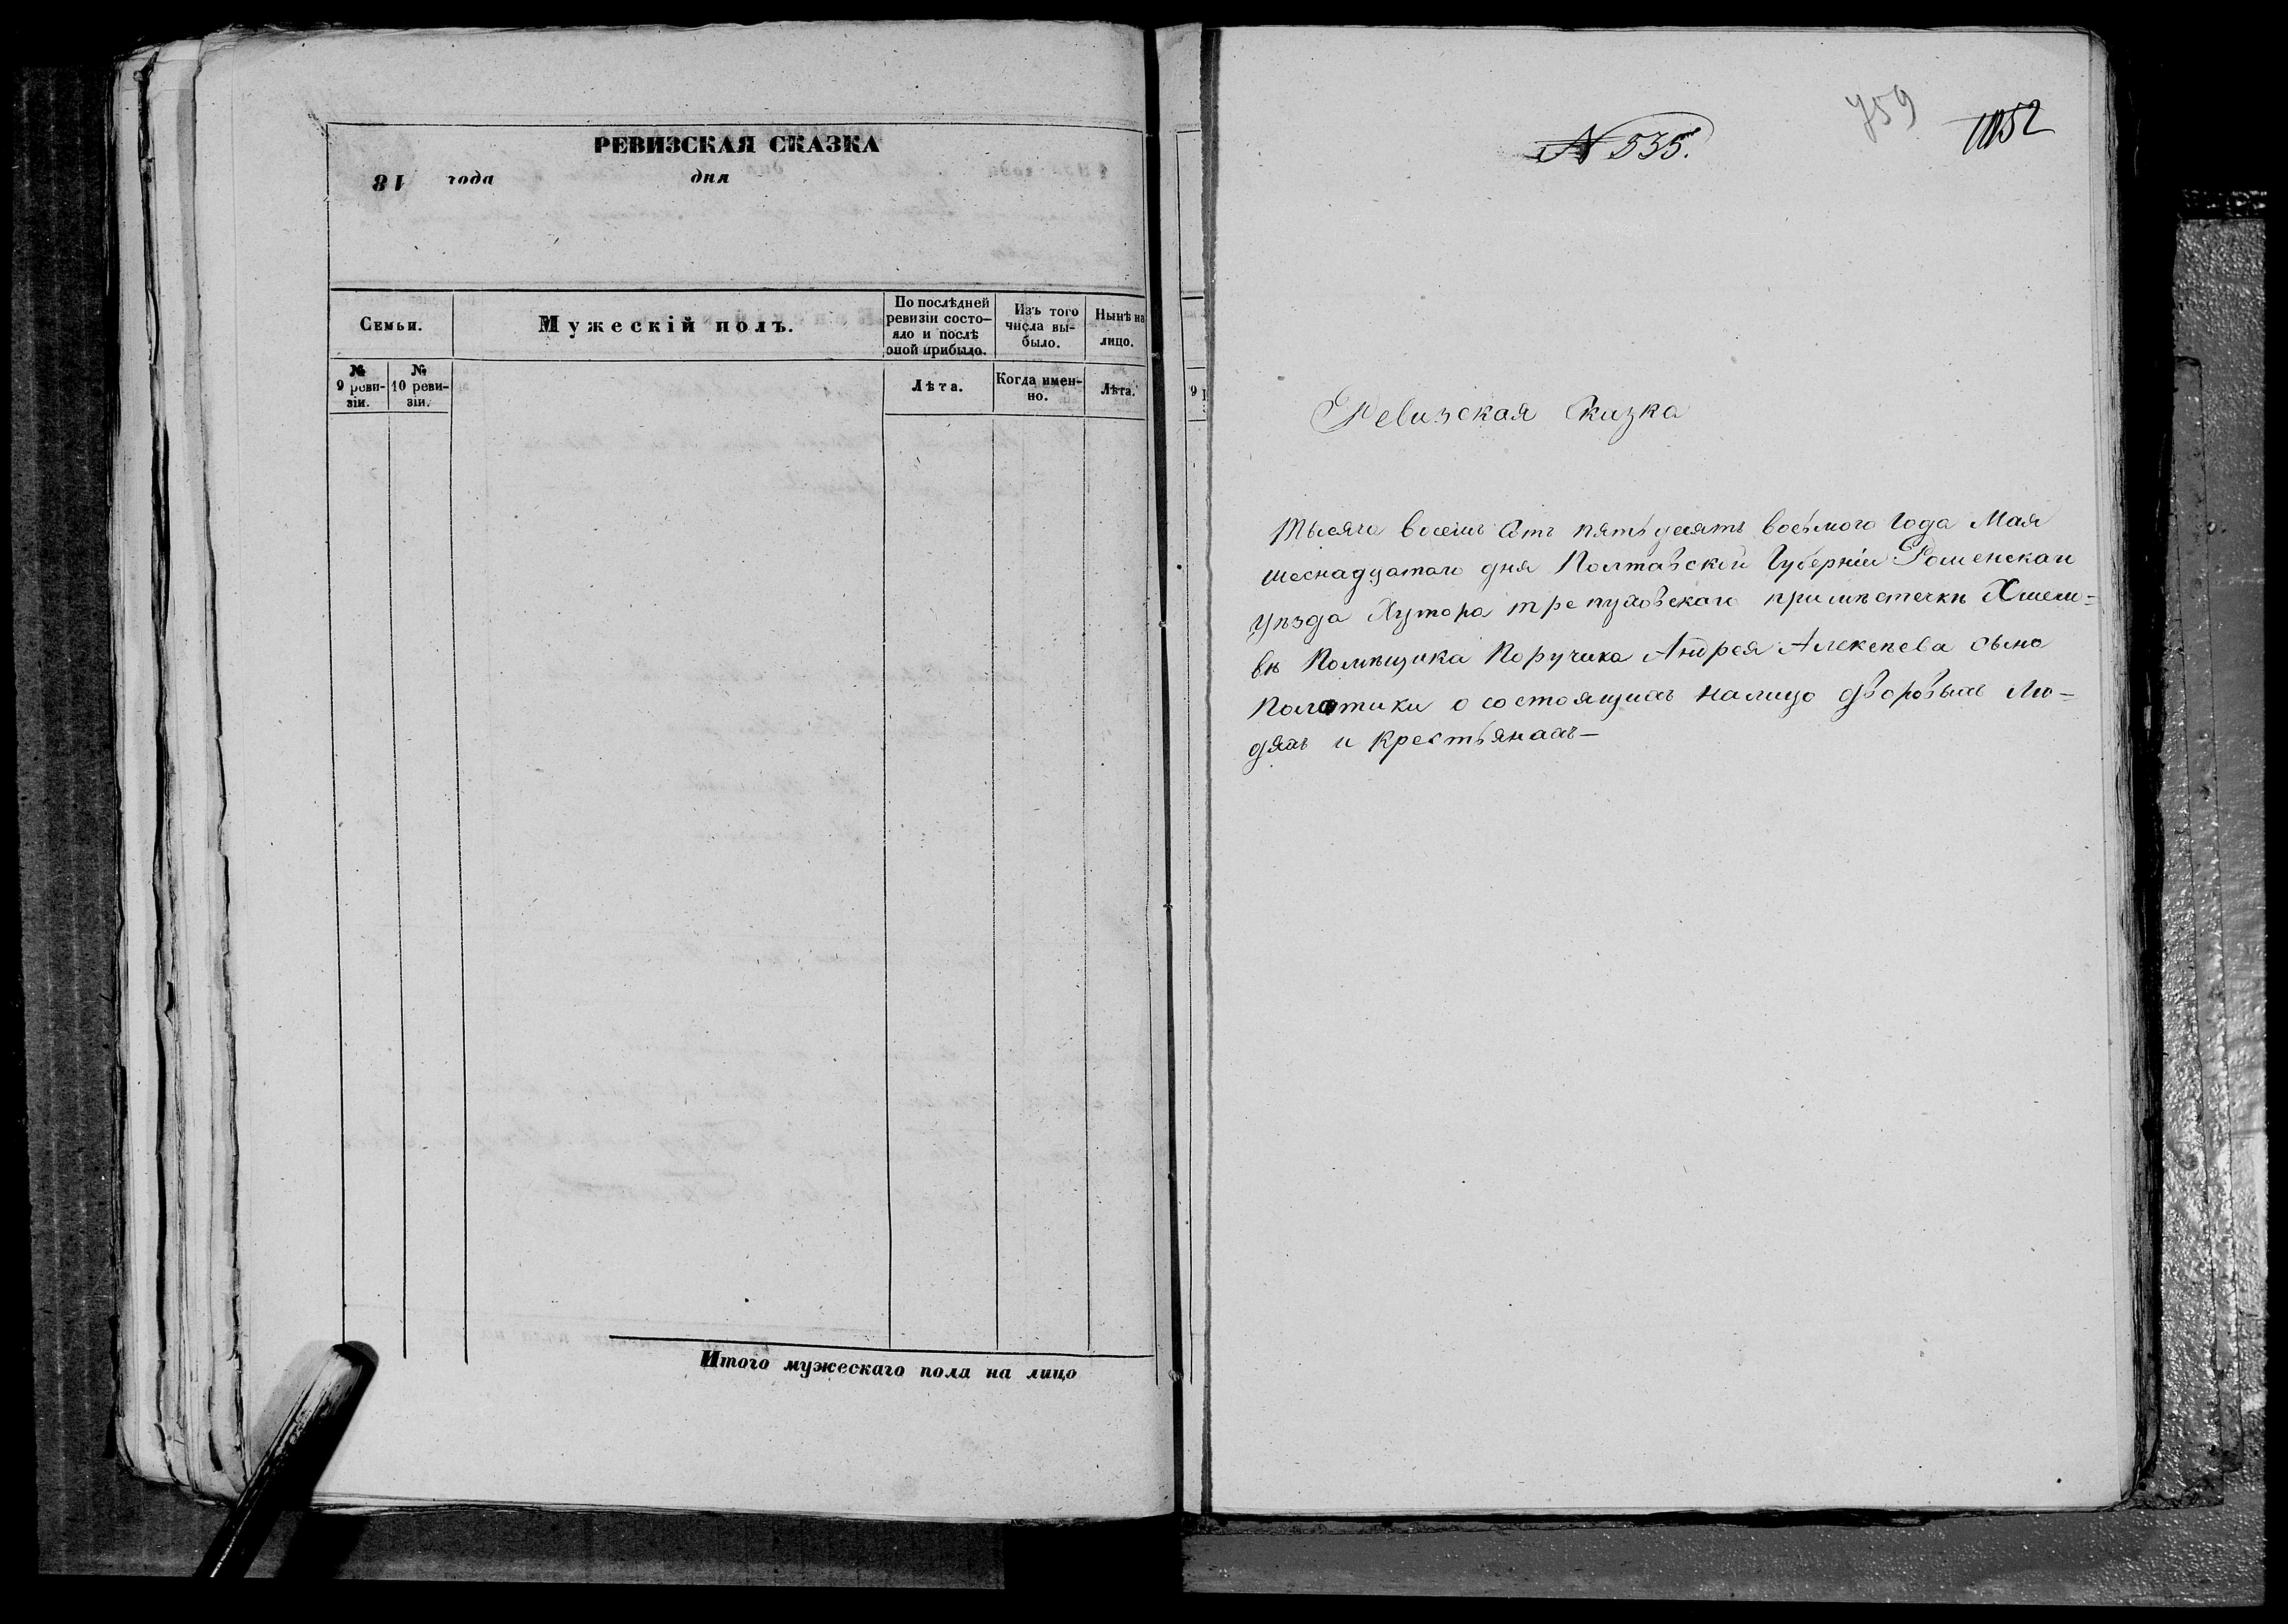 РЕВИЗСКАЯ СКАЗКА
18 года дня
Семьи.
Мужескій полъ.
По послѣдней ревизіи состо-
яло и послѣ
оной прибыло.
Изъ того
числа вы-
было.
Нынѣ на
лицо.
№
9 реви-
зіи.
№
10 реви-
зіи.
Лѣта.
Когда имен-
но.
Лѣта.
Итого мужескаго пола на лицо
9
N 535.
759
1152
Ревизская Сказка
Тысяча восемь Сотъ пятьдесятъ восьмого Года Мая
шеснадцатаго дня Полтавской Губерніи Роменскаго
уѣзда Хутора трепуховскаго примѣстечкѣ Хмело-
вѣ Помѣщика Поручика Андрея Алексѣева сына
Полотики о состоящихъ налицо дворовыхъ Лю-
дяхъ и крестьянахъ—